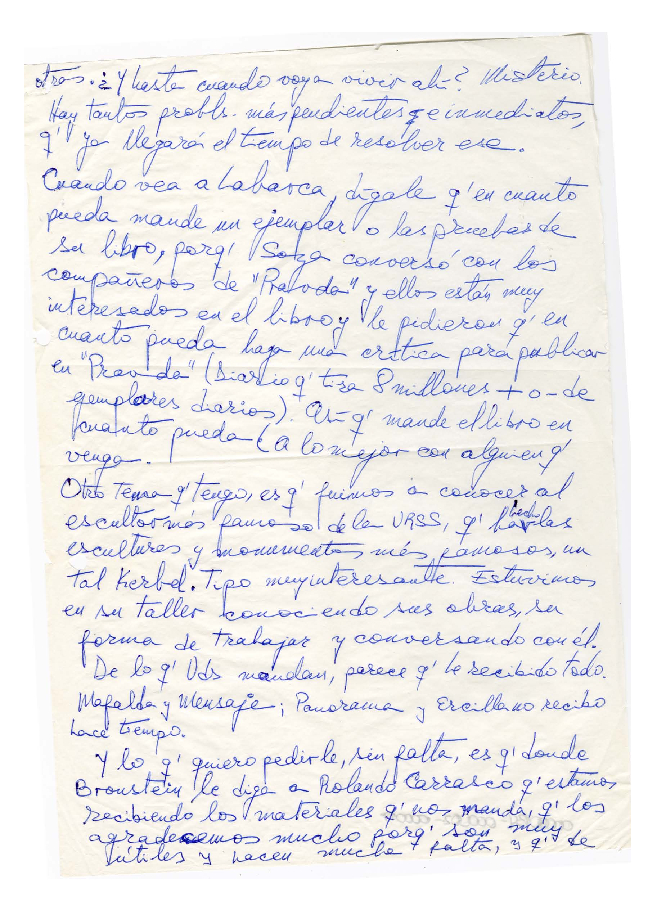 otras. ¿Y hasta cuando voy a vivir ahí? Misterio.
Hay tantos probls. más pendientes e inmediatos,
q' ya llegará el tiempo de resolver ese.
Cuando vea a Labarca, dígale q' en cuanto
pueda mande un ejemplar o las pruebas de
su libro, porq' Soza conversó con los
compañeros de "Pravda" y ellos están muy
interesados en el libro y le pidieron q' en
cuanto pueda haga una crítica para publicar
en "Pravda" (Diario q' tira 8 millones + o - de
ejemplares diarios). Así q' mande el libro en
cuanto pueda (A lo mejor con alguien q'
venga.
Otro tema q' tengo, es q' fuimos a conocer al
escultor más famoso de la URSS, q' ha hecho las
esculturas y monumentos más famosos, un
tal Kerbel. Tipo muy interesante. Estuvimos
en su taller conociendo sus obras, su
forma de trabajar y conversando con él.
De lo q' Uds mandan, parece q' he recibido todo.
Mafalda y Mensaje; Panorama y Ercilla no recibo
hace tiempo.
Y lo q' quiero pedirle, sin falta, es q' donde
Bronstein le diga a Rolando Carrasco q' estamos
recibiendo los materiales q' nos manda, q' los
agradecemos mucho porq' son muy
útiles y hacen mucha falta, y q' de